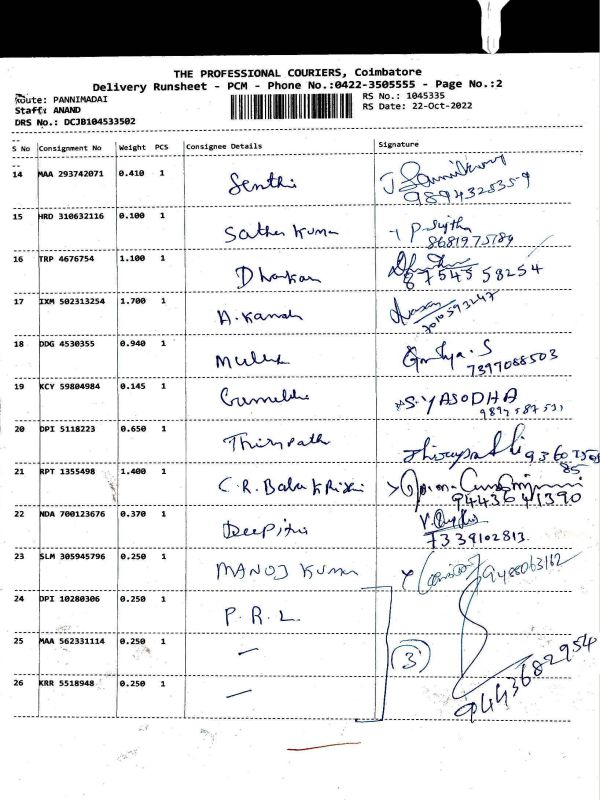 THE PROFESSIONAL COURIERS, Coimbatore
Delivery Runsheet - PCM - Phone No.:0422-3505555 - Page No.:2
Route: PANNIMADAI
Staff: ANAND
DRS No.: DCJB104533502
RS No.: 1045335
RS Date: 22-Oct-2022
S No Consignment No Weight PCS Consignee Details Signature
14 MAA 293742071 0.410 1 Senthi
15 HRD 310632116 0.100 1 Sathes Kumar P. Sujtha
8681975789
16 TRP 4676754 1.100 1
8754558254
17 IXM 502313254 1.700 1 A. Kanah
7010593247
18 DDG 4530355 0.940 1
7397088503
19 KCY 59804984 0.145 1 S. YASODHA
20 DPI 5118223 0.650 1 Thirupath
21 RPT 1355498 1.400 1 C.R. Bala
9443641390
22 NDA 700123676 0.370 1 Deepithi
7339102813
23 SLM 305945796 0.250 1 MANOJ KUMAR
9488063162
24 DPI 10280306 0.250 1 P. R. L.
25 MAA 562331114 0.250 1 — 3
26 KRR 5518948 0.250 1 — 9443682954